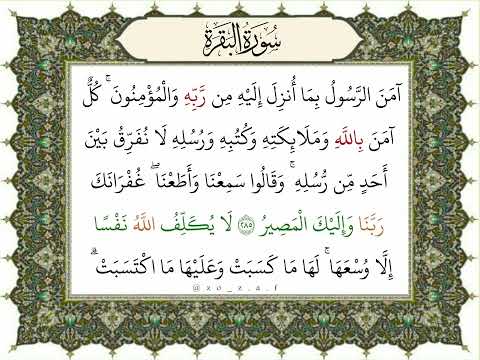 سُورَةُ الْبَقَرَةِ
آمَنَ الرَّسُولُ بِمَا أُنزِلَ إِلَيْهِ مِن رَّبِّهِ وَالْمُؤْمِنُونَ ۚ كُلٌّ
آمَنَ بِاللَّهِ وَمَلَائِكَتِهِ وَكُتُبِهِ وَرُسُلِهِ لَا نُفَرِّقُ بَيْنَ
أَحَدٍ مِّن رُّسُلِهِ ۚ وَقَالُوا سَمِعْنَا وَأَطَعْنَا ۖ غُفْرَانَكَ
رَبَّنَا وَإِلَيْكَ الْمَصِيرُ ﴿٢٨٥﴾ لَا يُكَلِّفُ اللَّهُ نَفْسًا
إِلَّا وُسْعَهَا ۚ لَهَا مَا كَسَبَتْ وَعَلَيْهَا مَا اكْتَسَبَتْ ۗ
@xo_z.a.f